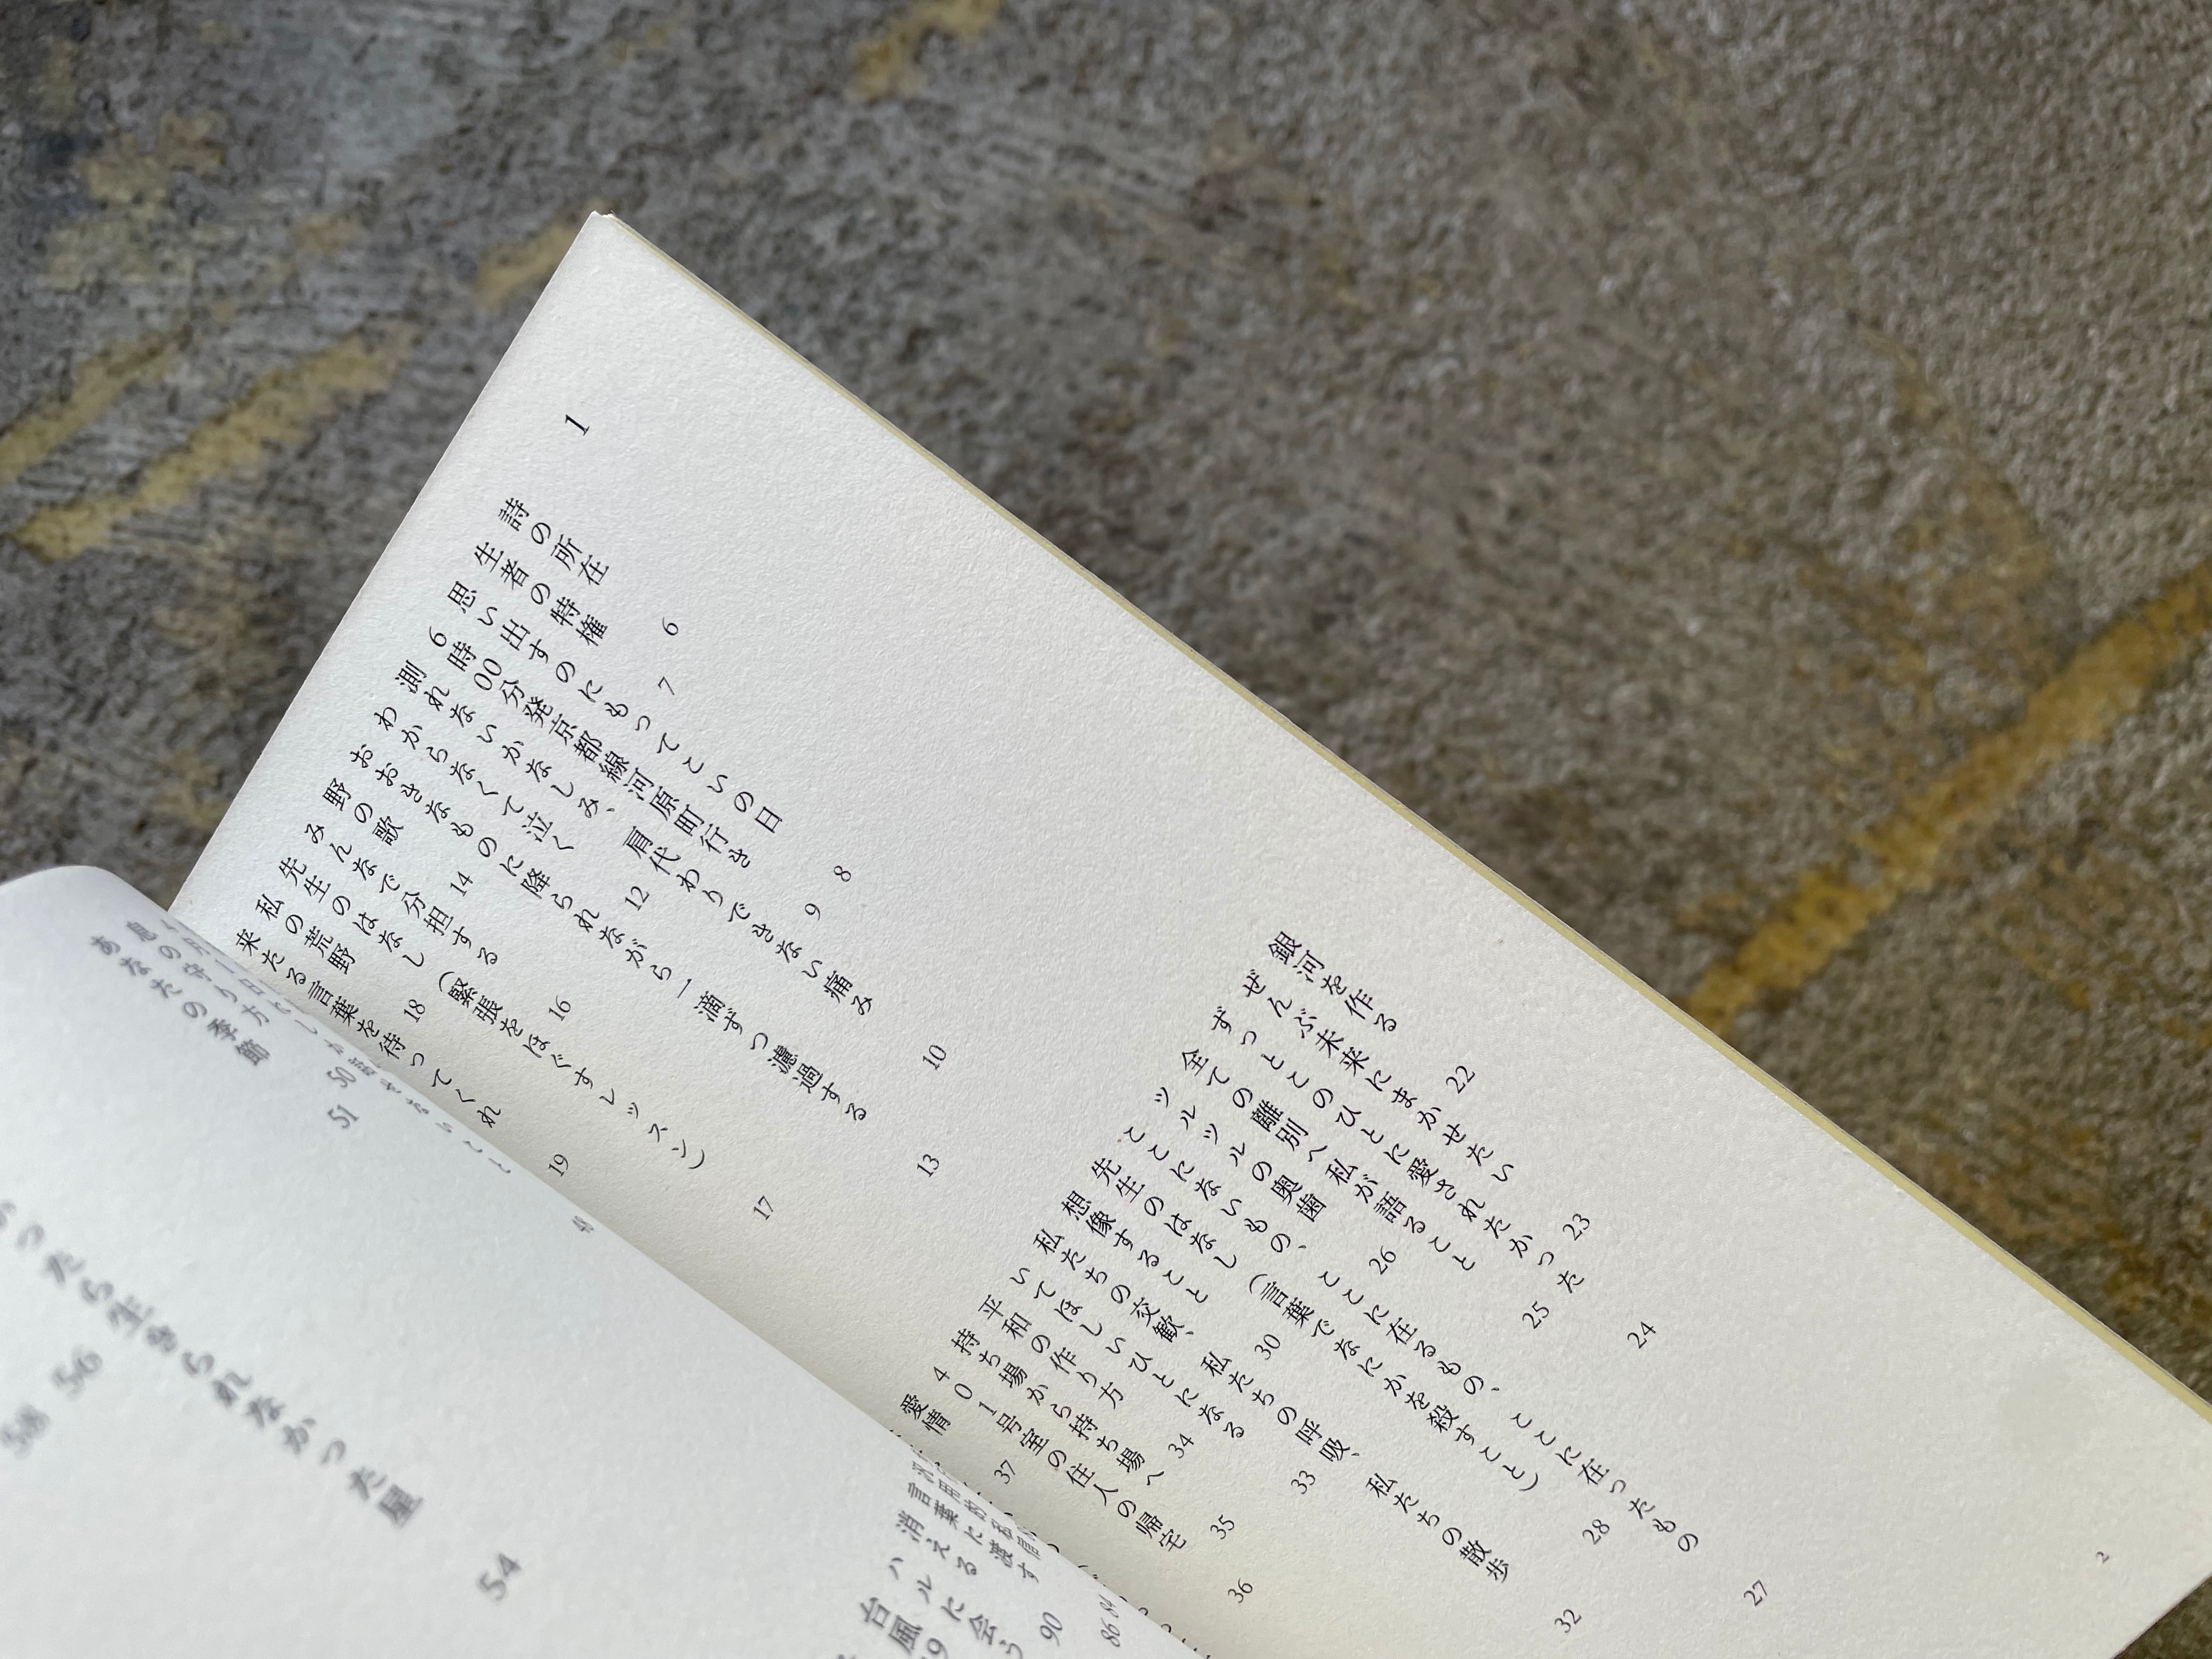 1
詩の所在 6
生者の特権 7
思い出すのにもってこいの日 8
6時00分発京都線河原町行き 9
測れないかなしみ、肩代わりできない痛み 10
わからなくて泣く 12
おおきなものに降られながら一滴ずつ濾過する 13
野の歌 14
みんなで分担する 16
先生のはなし(緊張をほぐすレッスン) 17
私の荒野 18
来たる言葉を待ってくれ 19
銀河を作る 22
ぜんぶ未来にまかせたい 23
ずっとこのひとに愛されたかった 24
全ての離別へ私が語ること 25
ツルツルの奥歯 26
ここにないもの、ここに在るもの、ここに在ったもの 27
先生のはなし(言葉でなにかを殺すこと) 28
想像すること 30
私たちの交歓、私たちの呼吸、私たちの散歩 32
いてほしいひとになる 33
平和の作り方 34
持ち場から持ち場へ 35
401号室の住人の帰宅 36
愛情 37
2
息の守り方 50
あなたの季節 51
ったら生きられなかった星 54
56
58
言葉に渡す 84
消える 86
ハルに会う 90
台風19